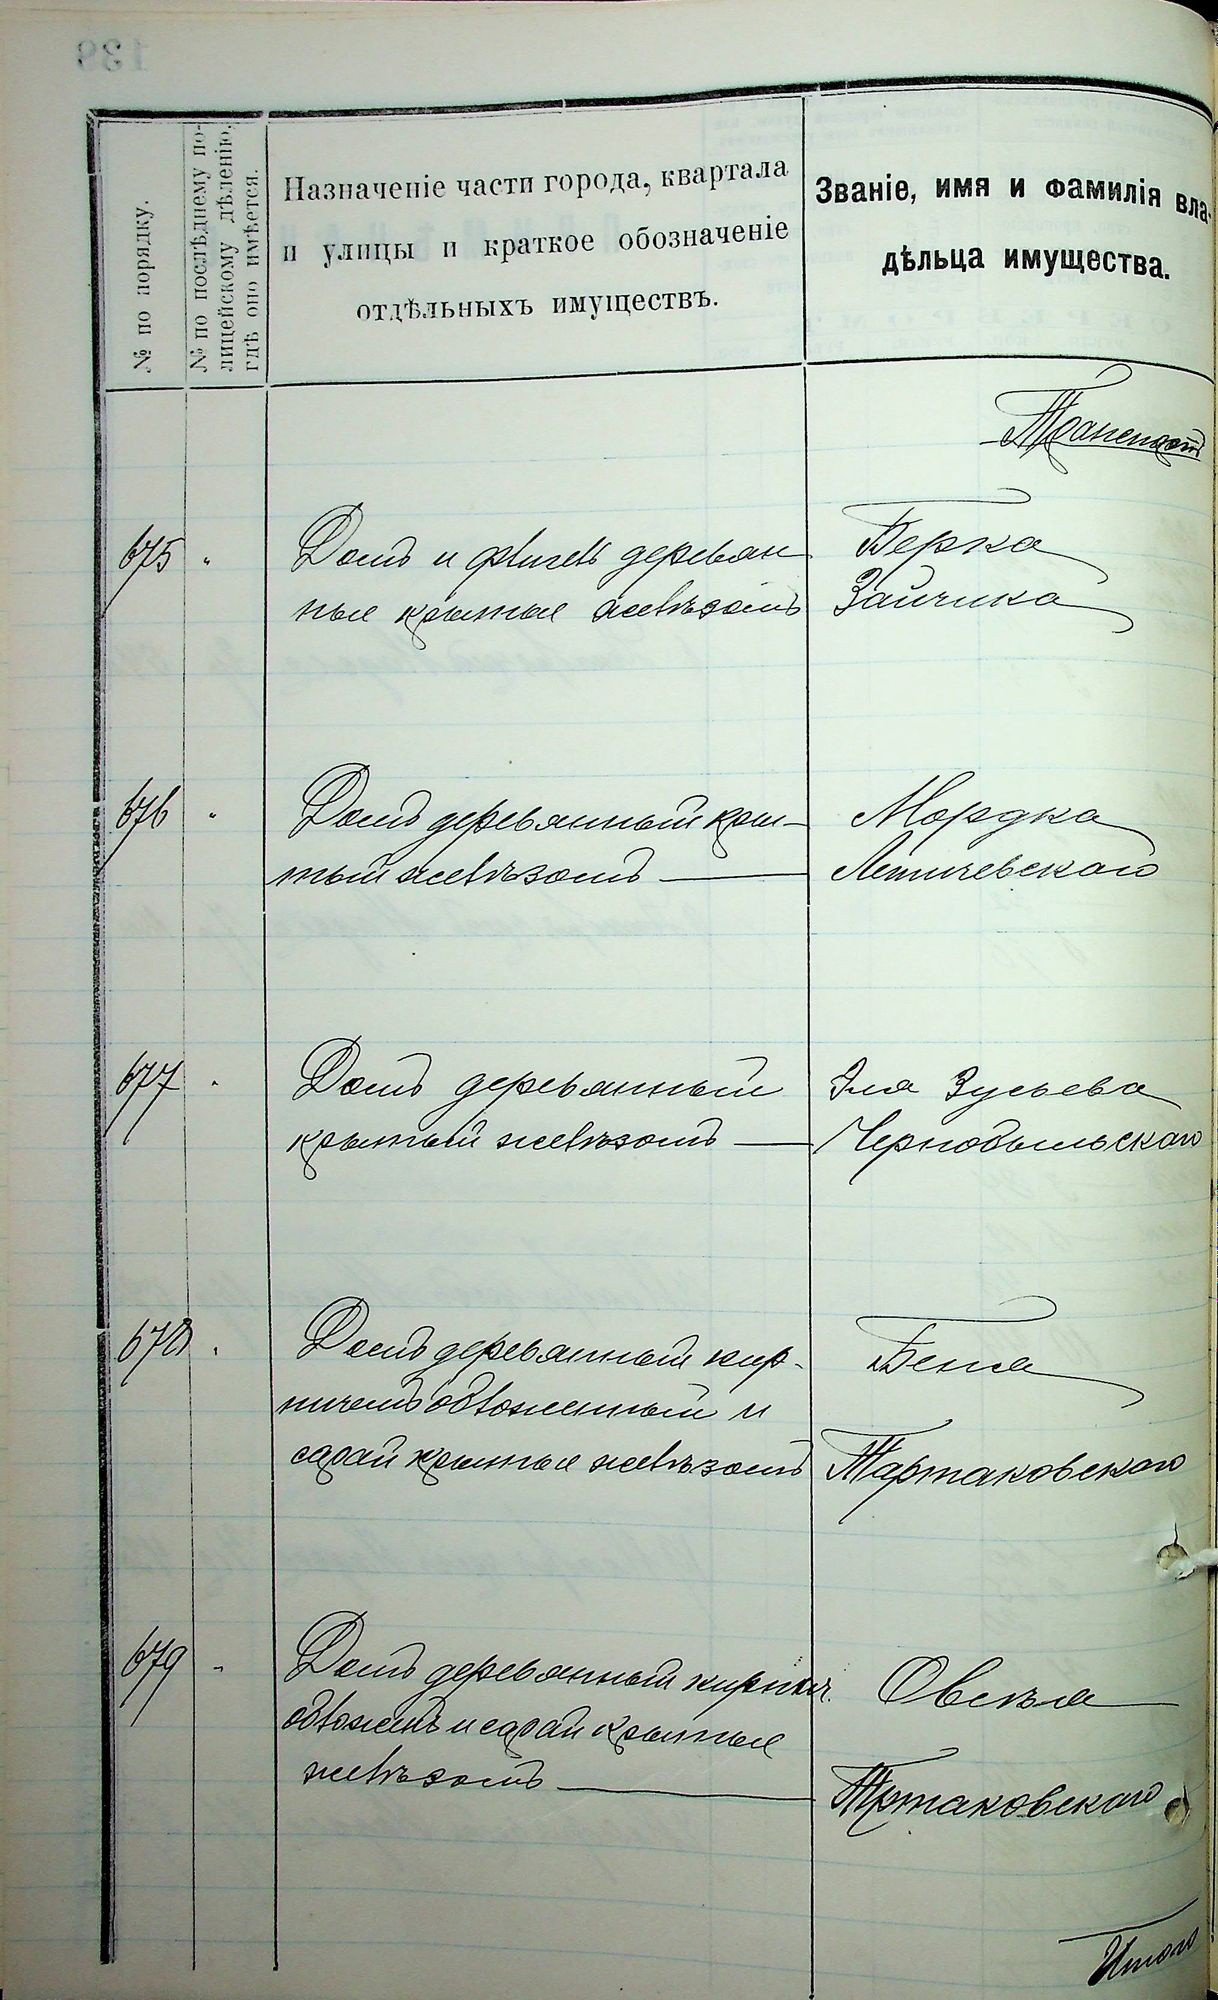 № по порядку.
№ по послѣднему по-
лицейскому дѣленію,
гдѣ оно имѣется.
Назначеніе части города, квартала
и улицы и краткое обозначеніе
отдѣльныхъ имуществъ.
Званіе, имя и фамилія вла-
дѣльца имущества.
Транспортъ
675 "
Домъ и флигель деревян
ные крытые желѣзомъ
Берка
Зайчика
676 "
Домъ деревянный кры-
тый желѣзомъ —
Мордка
Летичевскаго
677 "
Домъ деревянный
крытый желѣзомъ —
Эля Зусьева
Чернобыльскаго
678 "
Домъ деревянный кир-
пичемъ обложенный и
сарай крытые желѣзомъ
Бена
Тартаковскаго
679 "
Домъ деревянный кирпич.
обложенъ и сарай крытые
желѣзомъ —
Овсѣя
Тртаковскаго
Итого